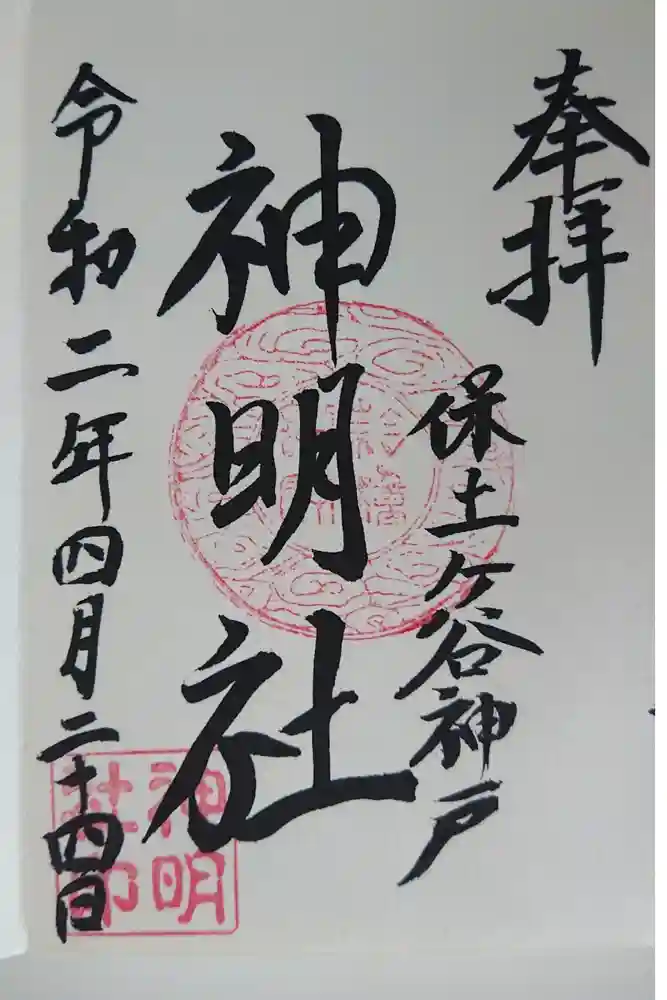 奉拝
保土ヶ谷神戸
神明社
令和二年四月二十四日
神明
社印